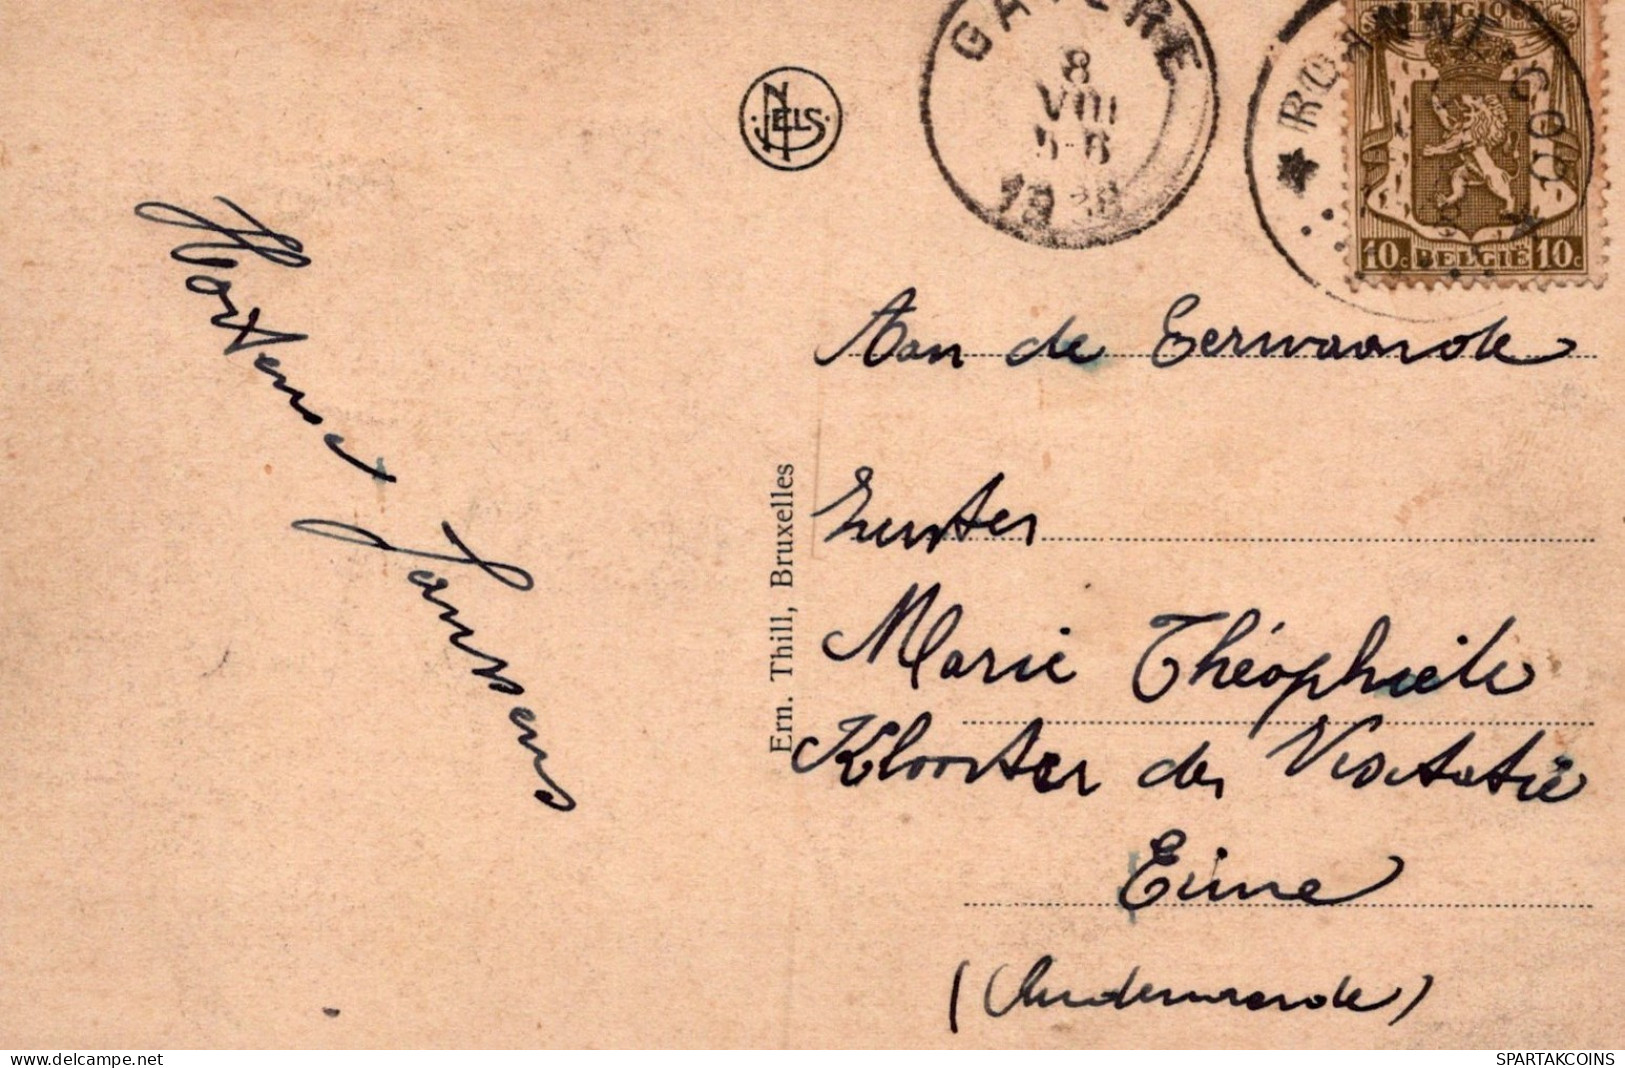 GAVERE
8
VIII
1938
★ ROANNE-COO ★
BELGIQUE
10c BELGIË 10c
NELS
Hortense Janssens
Ern. Thill, Bruxelles
Aan de Eerwaarde
Zuster
Marie Théophiele
Klooster der Visitatie
Eine
(Audenaarde)
784 x 508 mm
SPARTAKCOINS